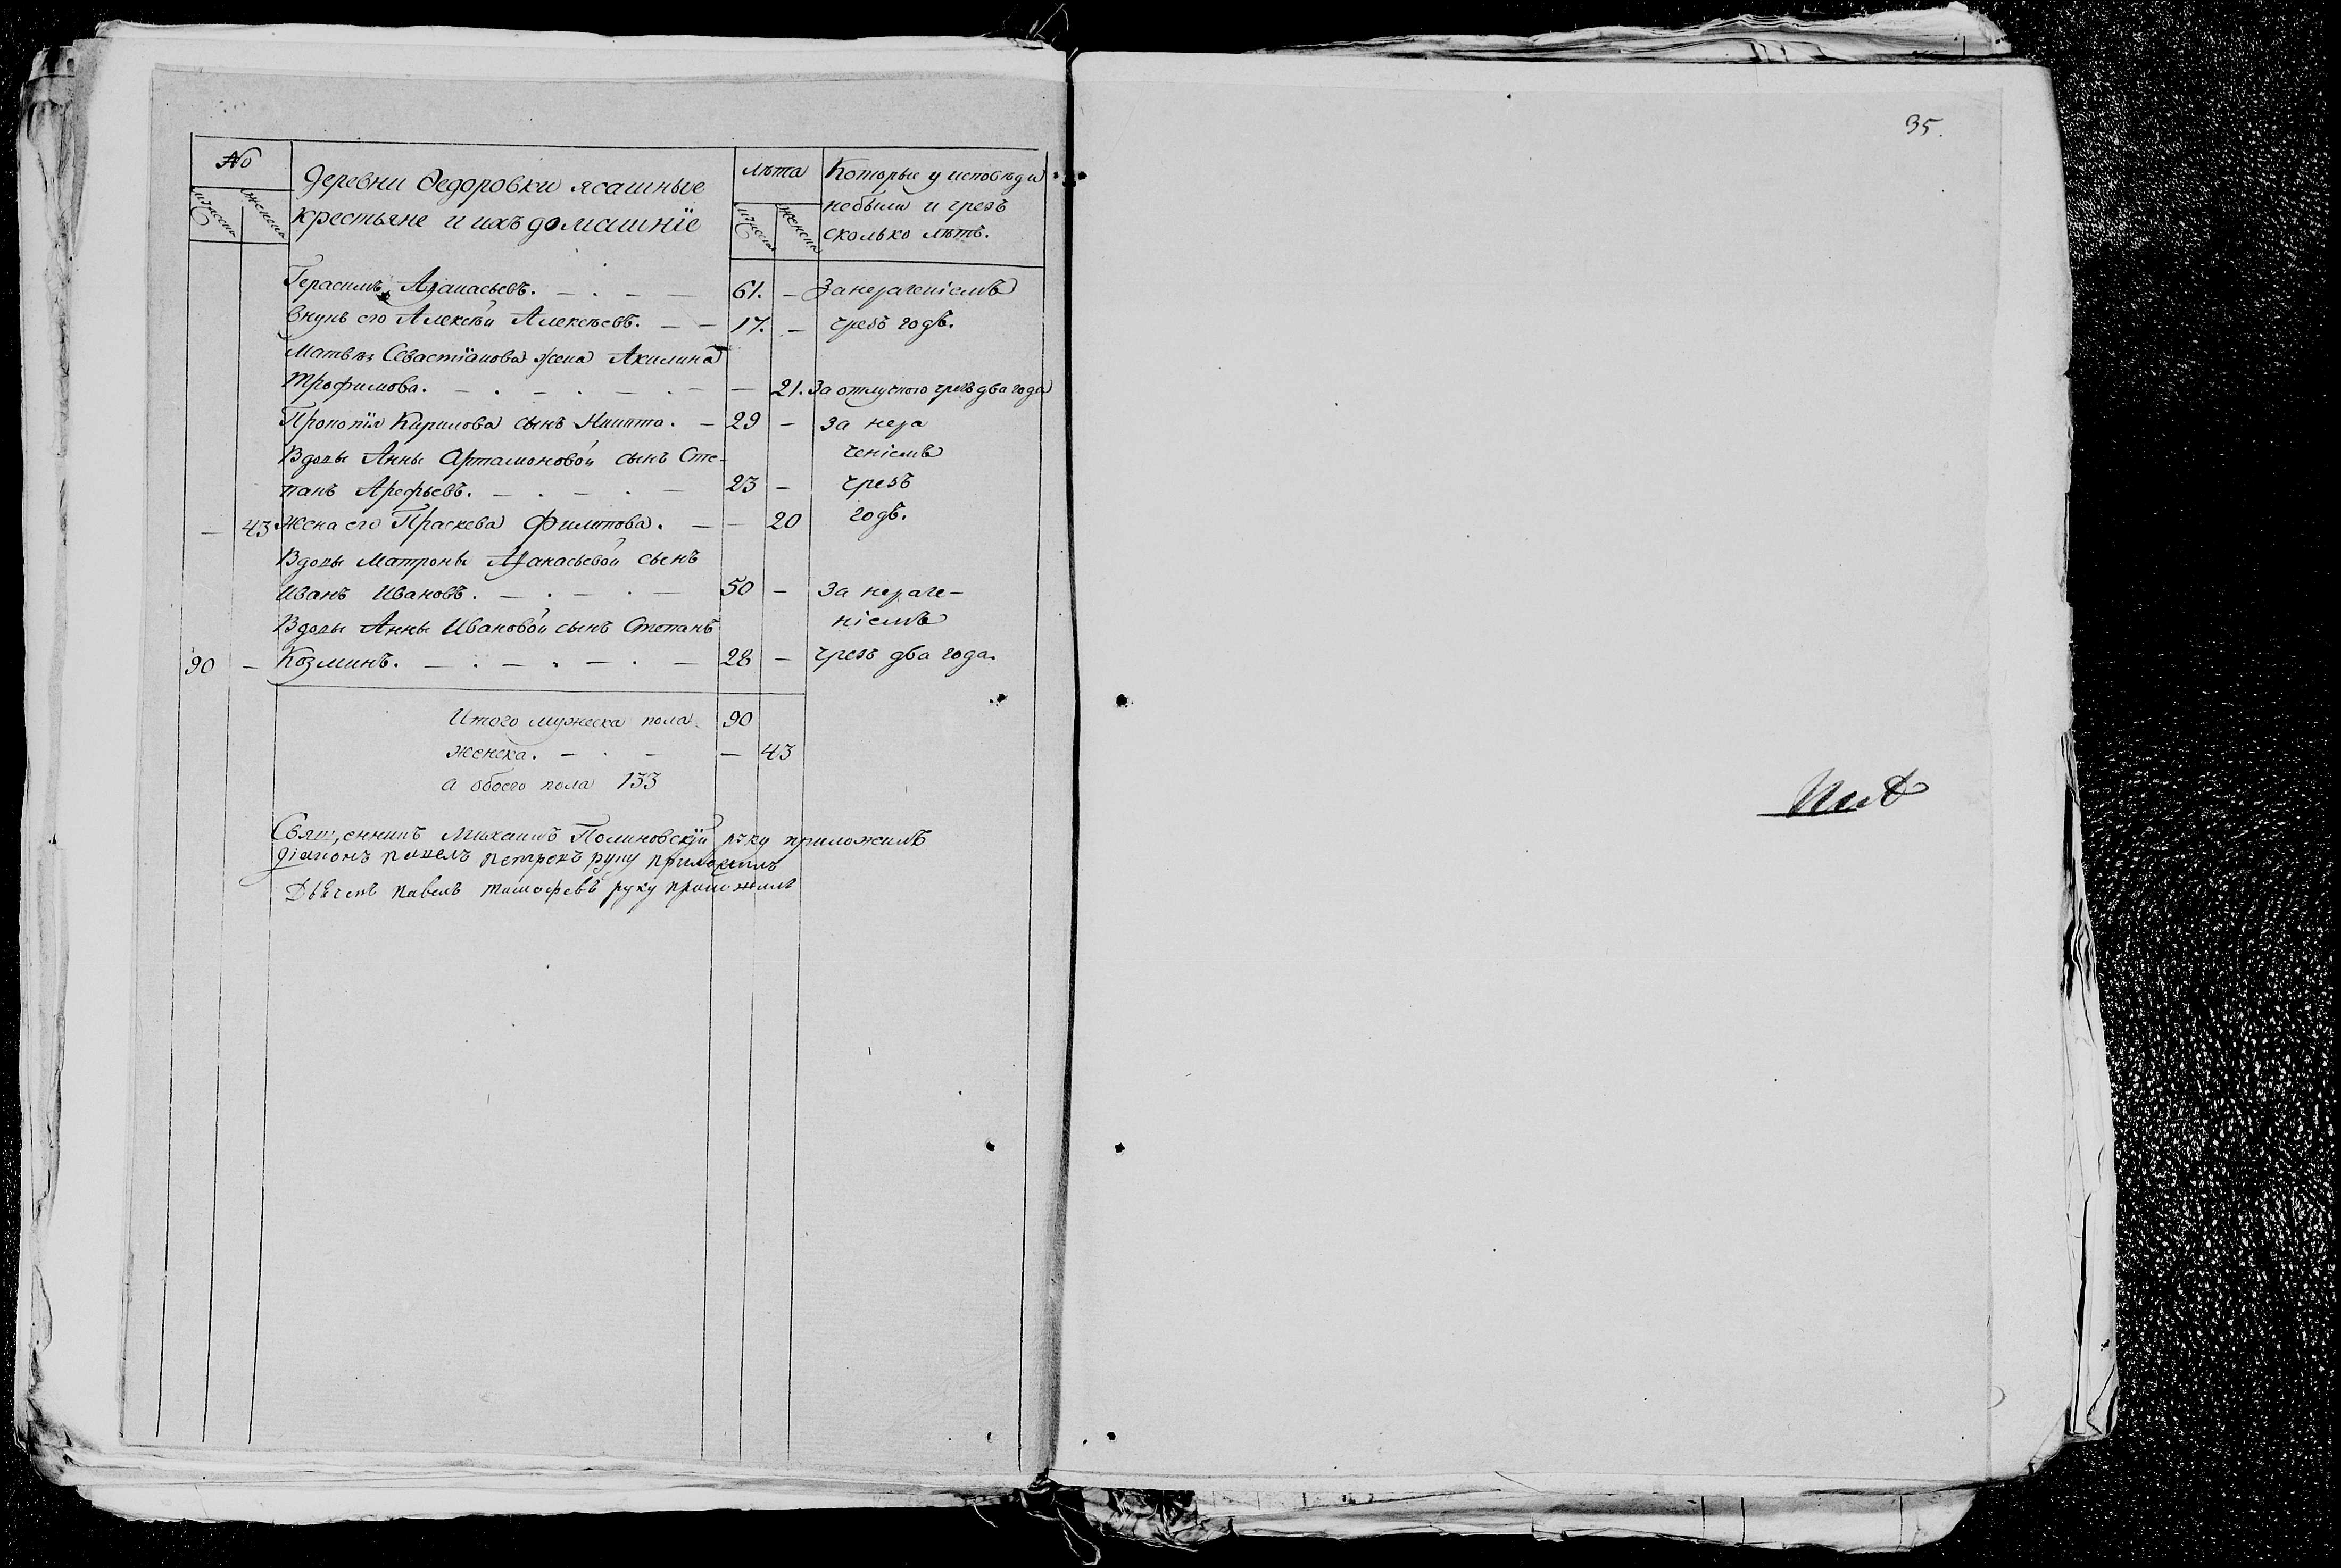 №
Мужеска
Женска
Деревни Ѳедоровки ясашные
крестьяне и ихъ домашнїе
лѣта
Мужеска
Женска
Которые у исповѣди
небыли и чрезъ
сколько лѣтъ.
Герасимъ Аѳанасьевъ. — . — — 61. — Занераченіемъ
Внукъ его Алексѣй Алексѣевъ. — — 17. — чрезъ годъ.
Матвѣя Севастїанова жена Акилина
Трофимова. — . — . — . — — 21. За отлучкою чрезъ два года
Прокопїя Кирилова сынъ Никита. — 29 — за нера
Вдовы Анны Артамоновой сынъ Сте- ченіемъ
панъ Арефьевъ. — . — . — 23 — чрезъ
— 43 Жена его Праскева Филипова. — — 20 годъ.
Вдовы Матроны Аѳанасьевой сынъ
Иванъ Ивановъ. — . — . — 50 — За нераче-
Вдовы Анны Ивановой сынъ Степанъ ніемъ
90 — Козминъ. — . — . — . — 28 — чрезъ два года.
Итого мужеска пола 90
женска. — . — — 43
а обоего пола 133
Священникъ Михаилъ Полиновскїй руку приложилъ
діаконъ павелъ петровъ руку приложилъ
Дьячекъ павелъ тимофевъ руку приложилъ
35.